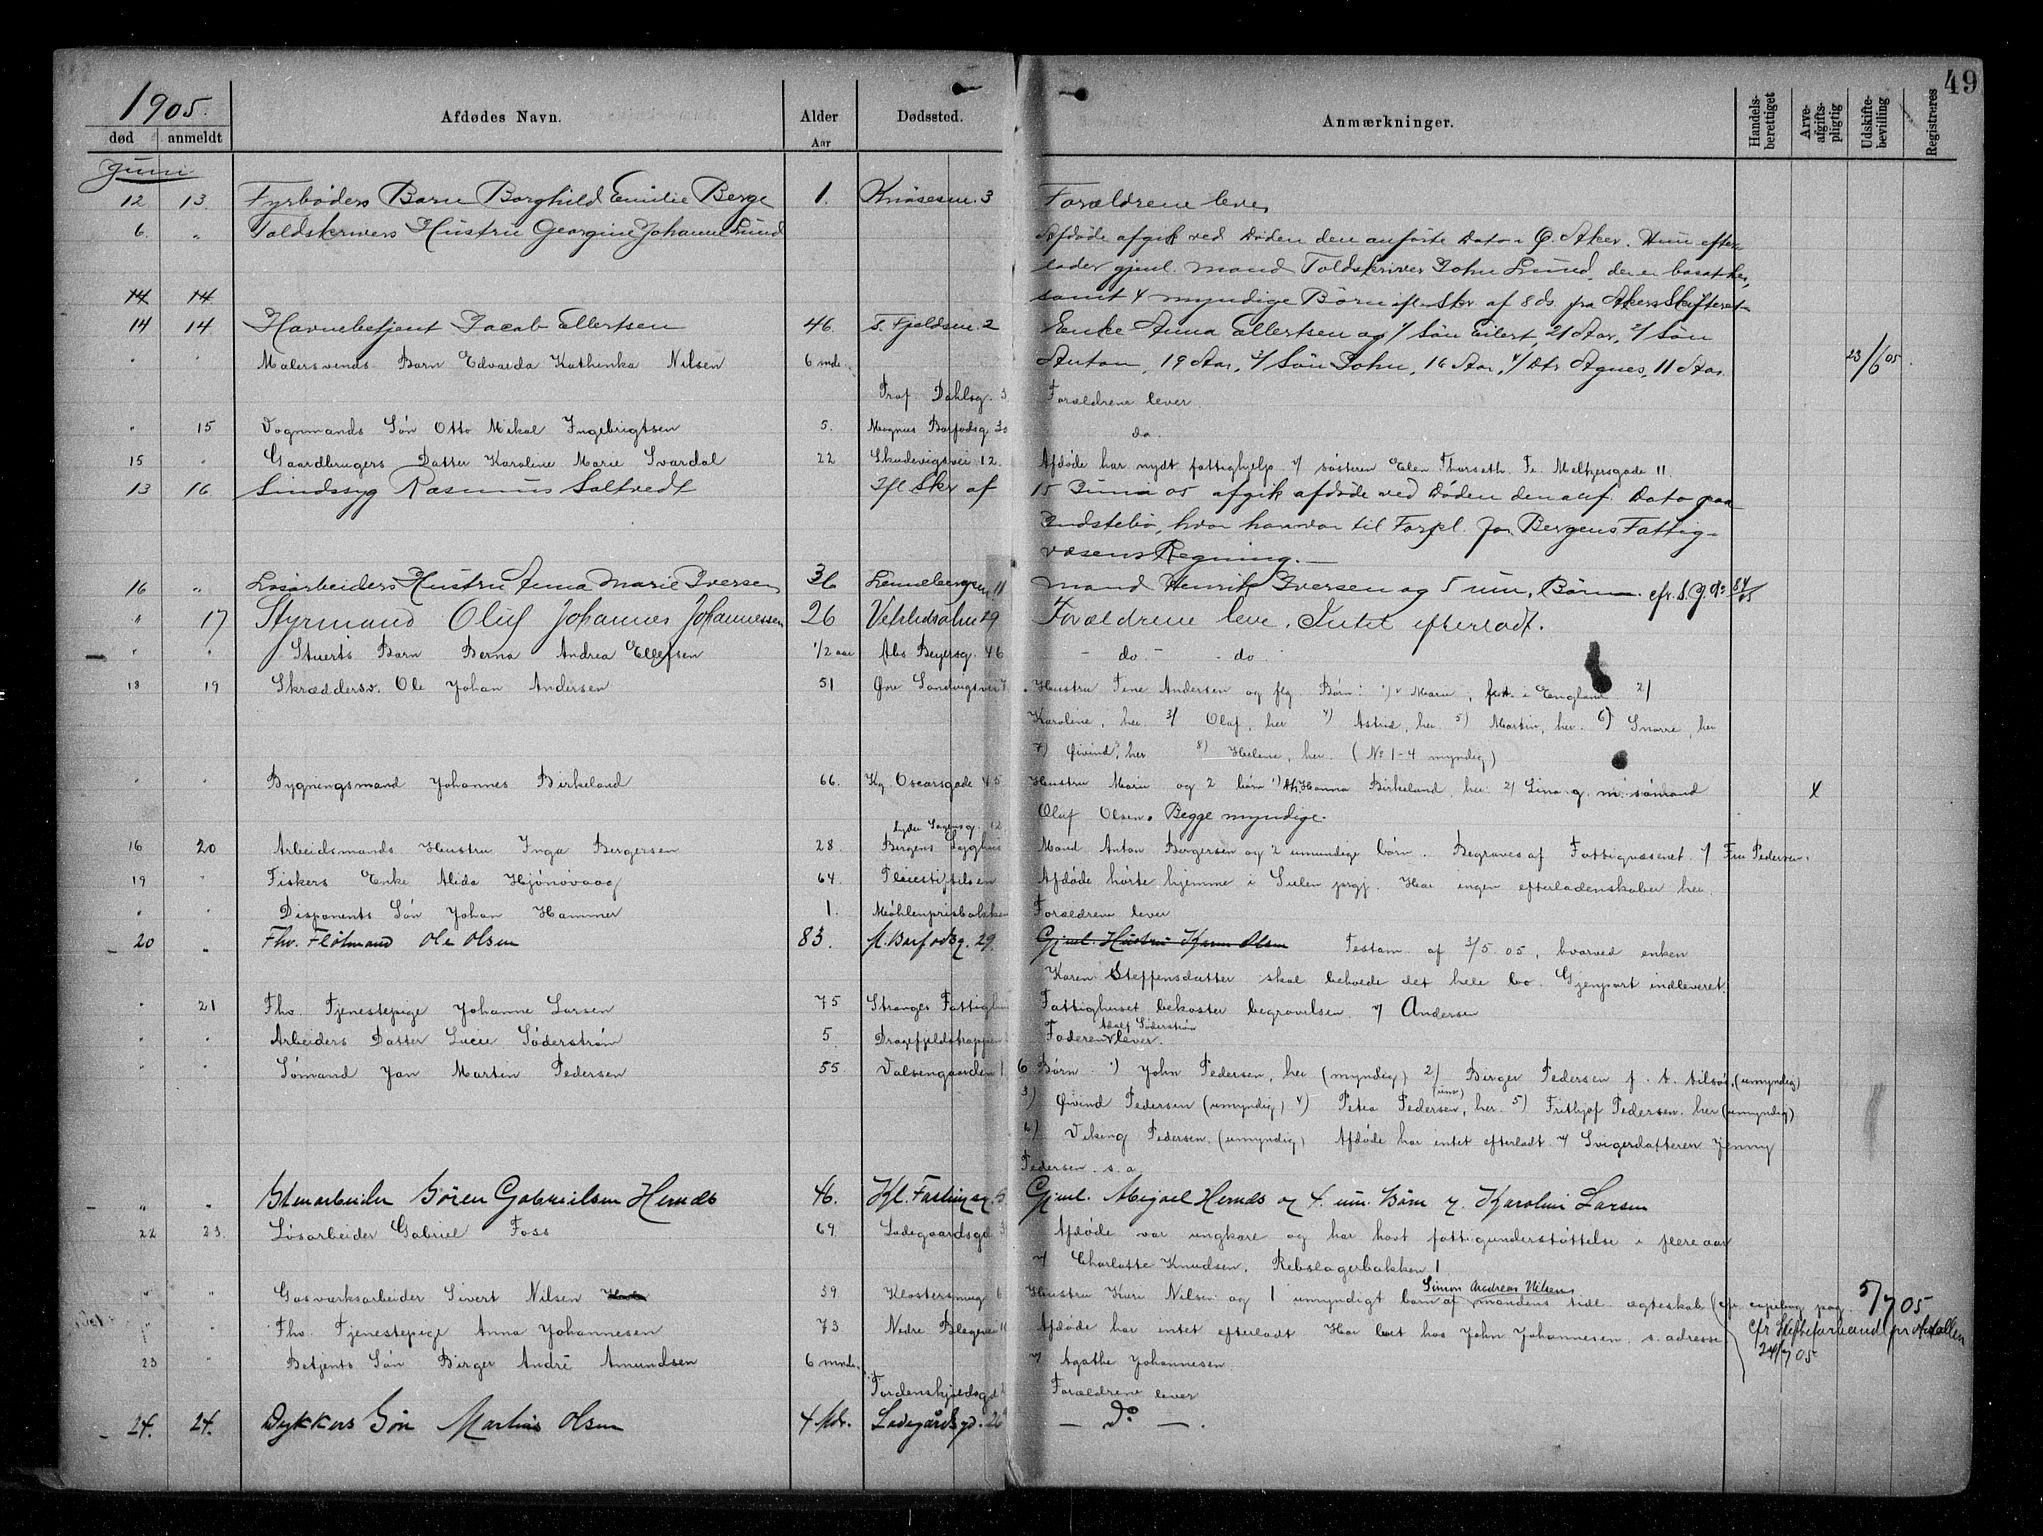 49
1905.
død anmeldt Afdødes Navn. Alder Aar Dødssted. Anmærkninger. Handelsberettiget Arveafgiftspligtig Udskiftebevilling Registreres
Juni
12 13. Fyrbøders Barn Borghild Emilie Berge 1. Knøsesm. 3 Forældrene lever
6. " Toldskrivers Hustru Georgine Johanne Lund Afdøde afgik ved Døden den anførte Dato i Ø. Aker. Hun efter-
lader gjenl. mand Toldskriver John Lund, der er bosat her,
14 14. samt 4 myndige Børn ifl. Skr. af 8 ds. fra Akers Skifteret
14 14. Havnebetjent Jacob Ellertsen 46. T. Fjeldsm. 2 Enke Anna Ellertsen og 1/ Søn Eilert, 21 Aar, 2/ Søn
" " Malersvends Barn Edvarda Kathinka Nilsen 6 mdr. Anton, 19 Aar, 3/ Søn John, 16 Aar, 4/ Dtr Agnes, 11 Aar. 23/6 05
Prof. Dahlsg. 3 Forældrene lever
" 15 Vognmands Søn Otto Mikal Ingebrigtsen 5. Magnus Barfodsg. 30 do.
15 " Gaardbrugers Datter Karoline Marie Svardal 22 Skudevigsvei 12. Afdøde har nydt fattighjelp v/ søsteren Elen Thorseth. Fr. Meltzersgade 11
13 16 Sindssyg Rasmus Saltvedt Ifl. Skr. af 15 Juni 05 afgik afdøde ved Døden den anf. Dato paa
Indstebø, hvor han var til Forpl. for Bergens Fattig-
væsens Regning.
16 " Løsarbeiders Hustru Anna Marie Iversen 36 Lennebergsm 11 Mand Henrik Iversen og 5 um. Børn. cfr. S. J. No 84/05
" 17 Styrmand Oluf Johannes Johannessen 26 Vetrlidsalm 29 Forældrene leve. Intet efterladt.
" " Stuerts Barn Berna Andrea Ellefsen 1/2 aar Abs Beyersg. 46 - do - - do.
18 19 Skræddersv. Ole Johan Andersen 51 Øvre Sandvigsvei 7. Hustru Tine Andersen og flg. Børn: 1) Marie, født i England 2/
Karoline, her. 3/ Olaf, her 4) Astrid, her. 5) Martin, her. 6) Snorre, her
7) Øivind, her 8) Helene, her. (No 1-4 myndig)
" " Bygningsmand Johannes Birkeland 66. Kg. Oscarsgade 45 Hustru Marie og 2 børn 1) Hanna Birkeland, her 2/ Lina g. m. sømand
Oluf Olsen. Begge myndige.
Lyder Sagensg. 12.
16 20 Arbeidsmands Hustru Inga Bergersen 28. Bergens Sygehus Mand Anton Bergersen og 2 umyndige børn. Begraves af Fattigvæsenet v/ Fru Pedersen.
19 " Fiskers Enke Alida Hjønøvaag 64. Pleiestiftelsen Afdøde hørte hjemme i Sulen prgj. Har ingen efterladenskaber her.
" " Disponents Søn Johan Hammer 1. Møhlenprisbakken Forældrene lever
20 " Fhv. Fløtmand Ole Olsen 83. M. Barfodsg. 29. Gjenl. Hustru Karen Olsen Testam. af 3/5. 05, hvorved enken
Karen Steffensdatter skal beholde det hele bo. Gjenpart indleveret.
" 21 Fhv. Tjenestepige Johanne Larsen 75 Stranges Fattighus Fattighuset bekoster begravelsen. v/ Andersen
" " Arbeiders Datter Lucie Søderstrøm 5. Dragefjeldstrappen Faderen Adolf Søderstrøm lever.
" " Sømand Jan Martin Pedersen 55. Valsengaarden 1. 6 Børn. 1) John Pedersen, her (myndig) 2/ Birger Pedersen f. t. tilsøs, (umyndig)
3) Øivind Pedersen (umyndig) 4) Petra Pedersen, (um) her. 5) Frithjof Pedersen. her (umyndig)
6) Viking Pedersen. (umyndig) Afdøde har intet efterladt v/ Svigerdatteren Jenny
Pedersen. s. a.
" " Stenarbeider Søren Gabrielsen Hernds 46. Kl. Fastingsg. Gjenl. Migael Hernds og 4. um. Børn v. Karolini Larsen
22 23. Løsarbeider Gabriel Foss 69 Ladegaardsgd 3 Afdøde var ungkare og har havt fattigunderstøttelse i flere aar
v/ Charlotte Knudsen. Rebslagerbakken 1
" " Gasværksarbeider Sivert Nilsen 39 Klostersmug 6 Hustru Kari Nilsen og 1 umyndigt barn Simon Andreas Nilsen af mandens tidl. ægteskab 5/7 05
" " Fhv. Tjenestepige Anna Johannesen 73 Nedre Blegevei Afdøde har intet efterladt. Har boet hos John Johannesen, s. adresse
24/7 05.
23 " Betjents Søn Birger André Amundsen 6 mndr. v/ Agathe Johannesen.
Tordenskjoldsgd Forældrene lever
24. 24. Dykkers Søn Martins Olsen 4 Mdr. Ladegårdsgd. 26 — Do —.